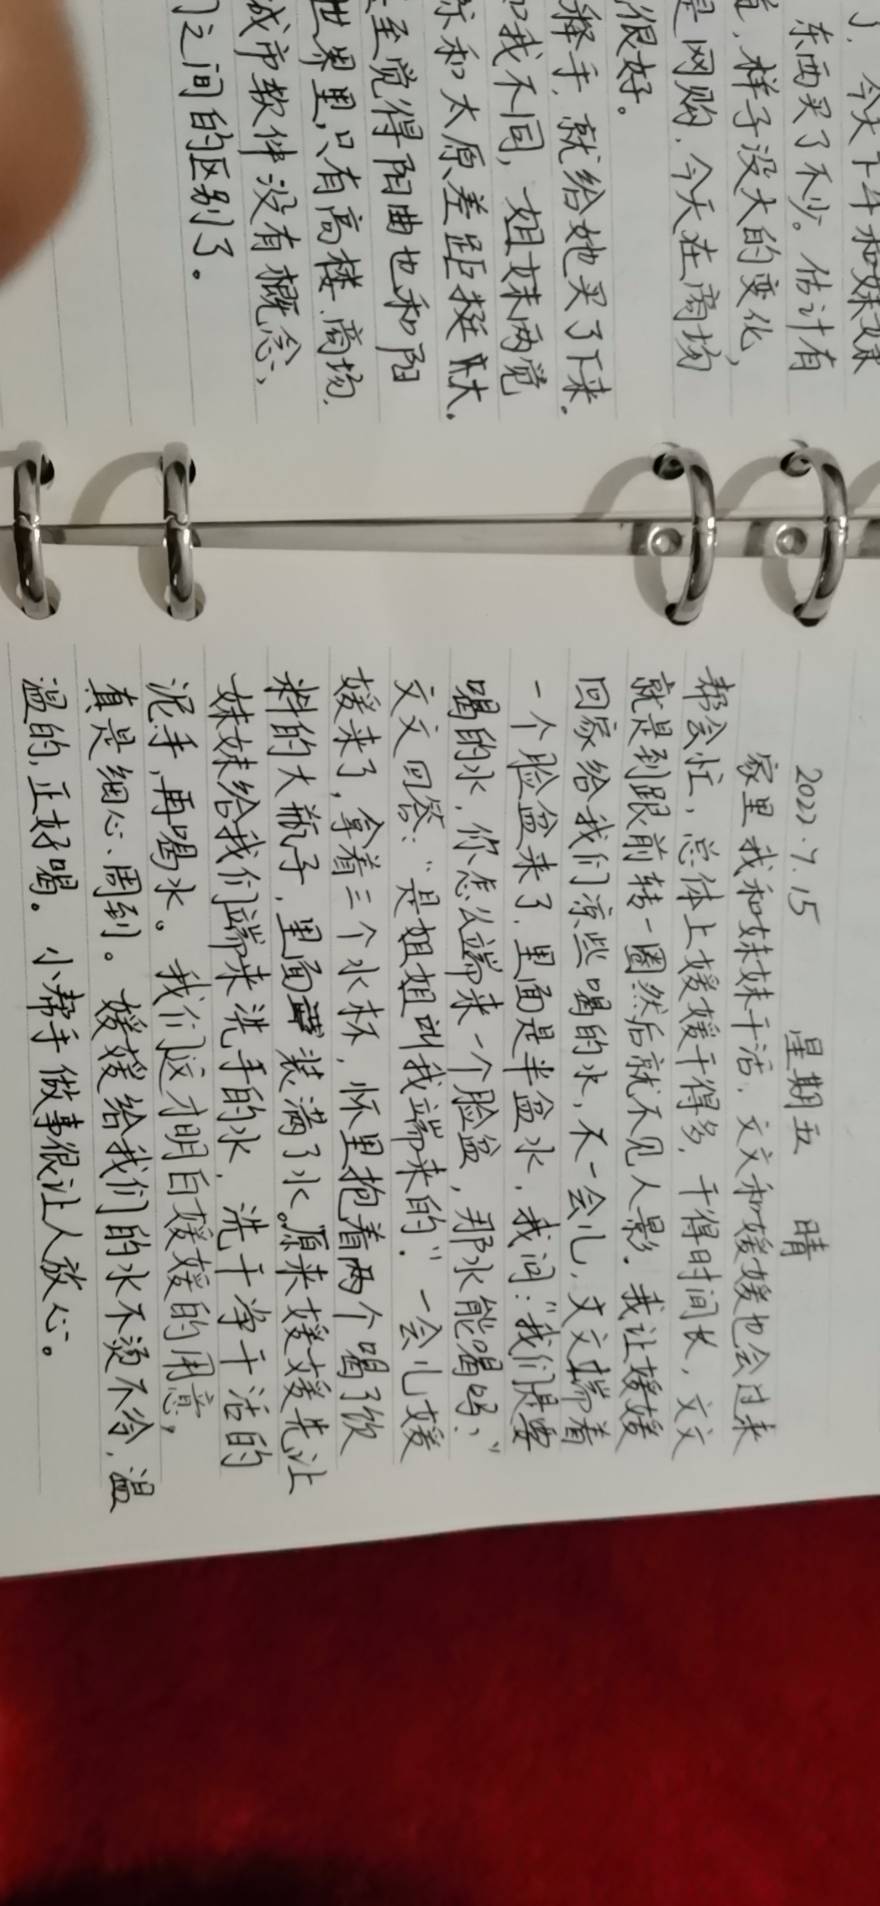 了．今天下午和妹妹
东西买了不少。估计有
道，样子没大的变化，
是网购．今天在商场
很好。
释手，就给她买了下来．
和我不同，姐妹两觉
和太原差距挺大．
至觉得阳曲也和阳
世界里，只有高楼．商场．
城市软件没有概念，
之间的区别了。
2022.7.15 星期五 晴
家里我和妹妹干活．文文和媛媛也会过来
帮会忙，总体上媛媛干得多．干得时间长，文文
就是到跟前转一圈然后就不见人影．我让媛媛
回家给我们凉些喝的水，不一会儿，文文端着
一个脸盆来了．里面是半盆水．我问：“我们是要
喝的水，你怎么端来一个脸盆，那水能喝吗，”
文文回答：“是姐姐叫我端来的．”一会儿媛
媛来了，拿着三个水杯，怀里抱着两个喝了饮
料的大瓶子．里面装满了水。原来媛媛先让
妹妹给我们端来洗手的水．洗干净干活的
泥手，再喝水。我们这才明白媛媛的用意，
真是细心、周到。媛媛给我们的水不烫不冷，温
温的，正好喝。小帮手做事很让人放心。